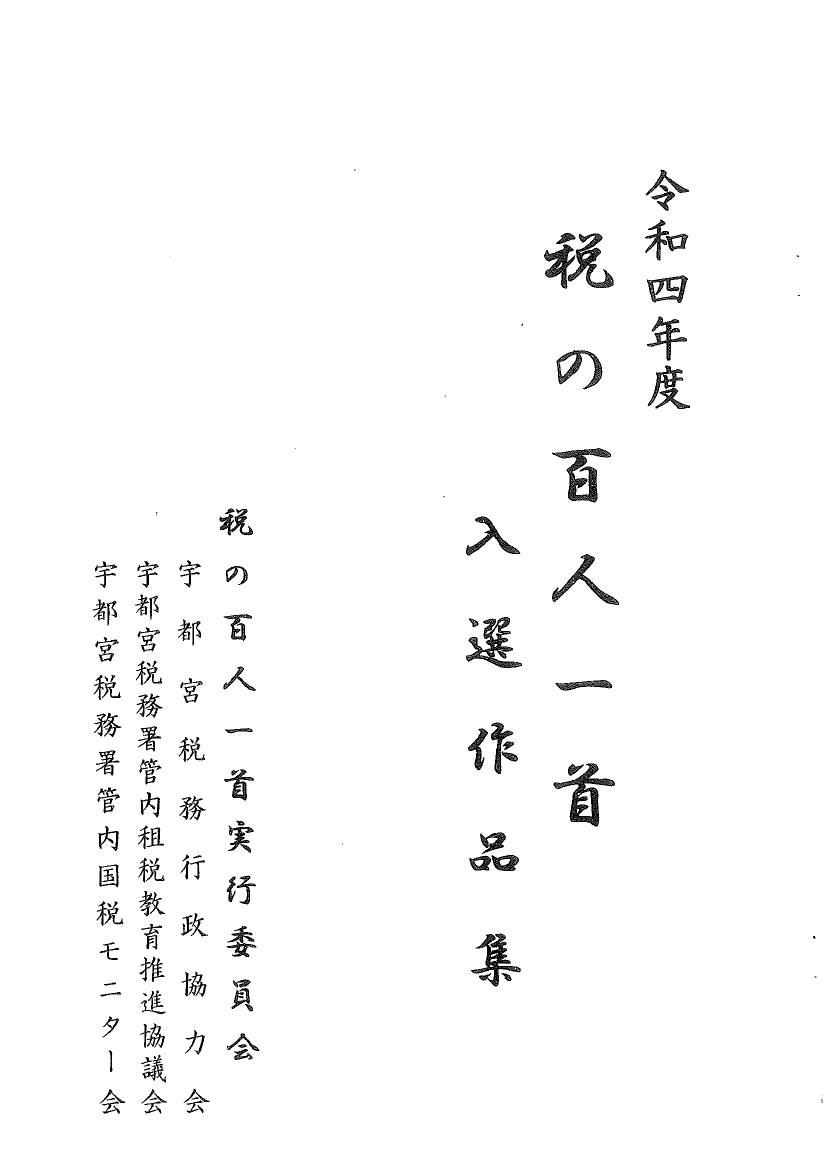 令和四年度
税の百人一首
入選作品集
税の百人一首実行委員会
宇都宮税務行政協力会
宇都宮税務署管内租税教育推進協議会
宇都宮税務署管内国税モニター会